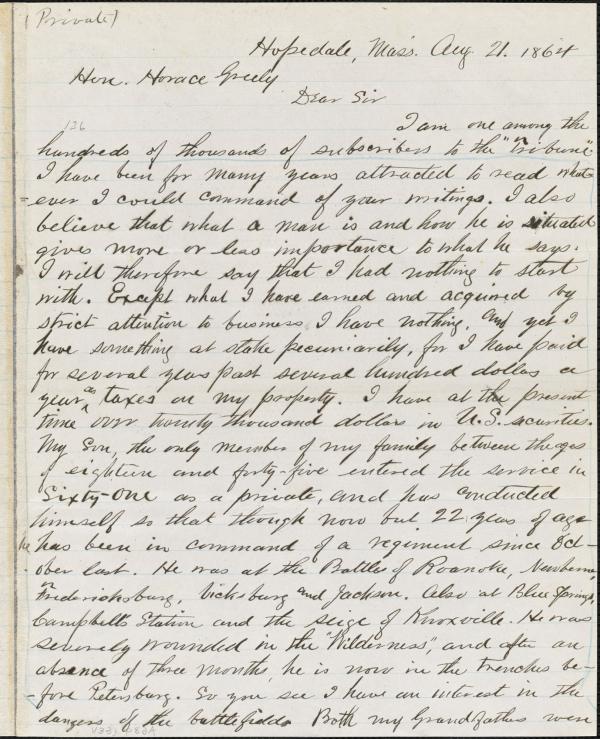 (Private)
Hopedale, Mass. Aug. 21. 1864
Hon. Horace Greely
Dear Sir
136
I am one among the
hundreds of thousands of subscribers to the "Tribune".
I have been for many years attracted to read what-
ever I could command of your writings. I also
believe that what a man is and how he is situated
gives more or less importance to what he says.
I will therefore say that I had nothing to start
with. Except what I have earned and acquired by
strict attention to business I have nothing, and yet I
have something at stake pecuniarily, for I have paid
for several years past several hundred dollas a
year as taxes on my property. I have at the present
time over twenty thousand dollars in U.S. securities.
My Son, the only member of my family between the ages
of eighteen and forty-five entered the service in
Sixty-One as a private, and has conducted
himself so that though now but 22 years of age
he has been in command of a regiment since Oct-
ober last. He was at the Battles of Roanoke, Newberne,
Fredericksburg, Vicksburg and Jackson. Also at Blue Springs,
Campbell's Station and the seige of Knoxville. He was
severely wounded in the "Wilderness", and after an
absence of three months, he is now in the trenches be-
fore Petersburg. So you see I have an interest in the
dangers of the battlefields Both my Grandfathers were